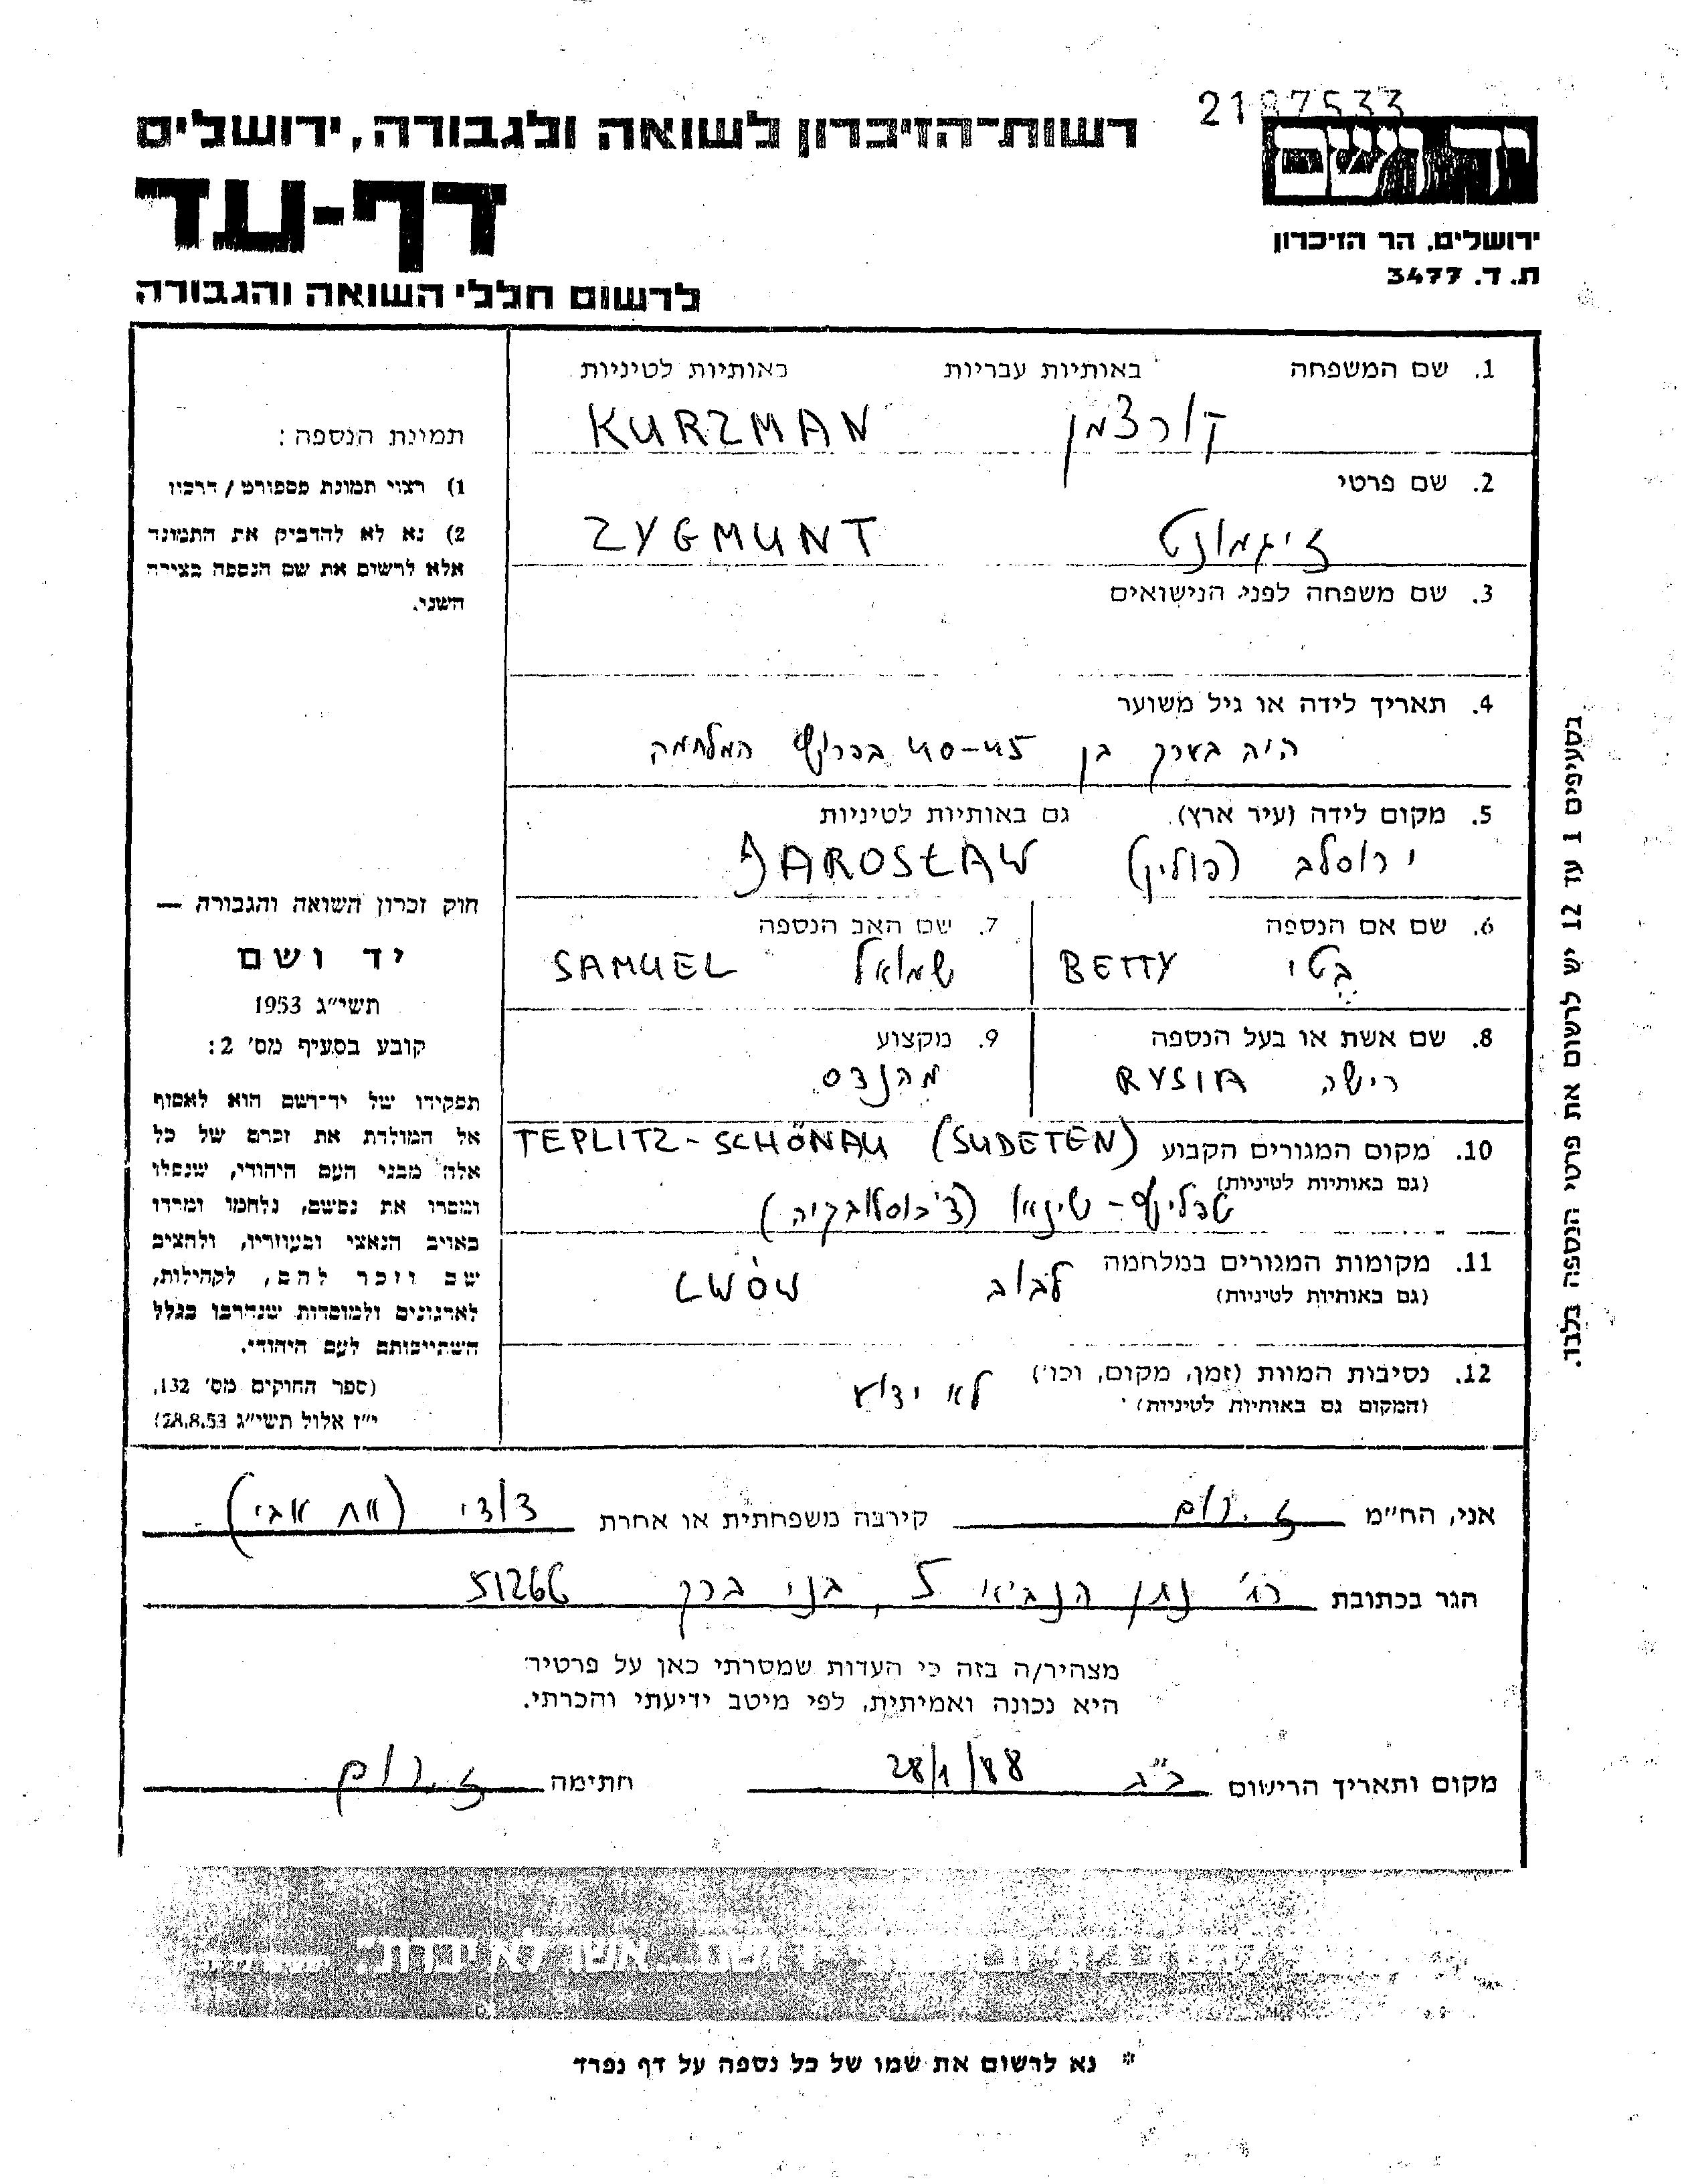 2197533
רשות-הזיכרון לשואה ולגבורה, ירושלים
יד ושם
דף-עד
ירושלים, הר הזיכרון
ת. ד. 3477
לרשום חללי השואה והגבורה
1. שם המשפחה באותיות עבריות באותיות לטיניות
קורצמן KURZMAN
2. שם פרטי
זיגמונט ZYGMUNT
3. שם משפחה לפני הנישואים
4. תאריך לידה או גיל משוער
היה בערך בן 40-45 בפרוץ המלחמה
5. מקום לידה (עיר ארץ) גם באותיות לטיניות
ירוסלב (פולין) JAROSŁAW
6. שם אם הנספה
בטי BETTY
7. שם האב הנספה
שמואל SAMUEL
8. שם אשת או בעל הנספה
רישה RYSIA
9. מקצוע
מהנדס
10. מקום המגורים הקבוע TEPLITZ-SCHÖNAU (SUDETEN)
(גם באותיות לטיניות)
טפליץ - שינאו (צ'כוסלובקיה)
11. מקומות המגורים במלחמה לבוב LWÓW
(גם באותיות לטיניות)
12. נסיבות המוות (זמן, מקום, וכו') לא ידוע
(המקום גם באותיות לטיניות)
תמונת הנספה:
1) רצוי תמונת פספורט / דרכון
2) נא לא להדביק את התמונה
אלא לרשום את שם הנספה בצידה
השני.
חוק זכרון השואה והגבורה —
יד ושם
תשי"ג 1953
קובע בסעיף מס' 2:
תפקידו של יד-ושם הוא לאסוף
אל המולדת את זכרם של כל
אלה מבני העם היהודי, שנפלו
ומסרו את נפשם, נלחמו ומרדו
באויב הנאצי ובעוזריו, ולהציב
שם וזכר להם, לקהילות,
לארגונים ולמוסדות שנחרבו בגלל
השתייכותם לעם היהודי.
(ספר החוקים מס' 132,
י"ז אלול תשי"ג 28.8.53)
בסעיפים 1 עד 12 יש לרשום את פרטי הנספה בלבד.
אני, הח"מ ז. רום קירבה משפחתית או אחרת דודי (אח אבי).
הגר בכתובת רח' נתן הנביא 5, בני ברק 51266
מצהיר/ה בזה כי העדות שמסרתי כאן על פרטיה
היא נכונה ואמיתית, לפי מיטב ידיעתי והכרתי.
מקום ותאריך הרישום ב"ב 28/1/88 חתימה ז. רום
יד ושם... אשר לא יכרת:
* נא לרשום את שמו של כל נספה על דף נפרד